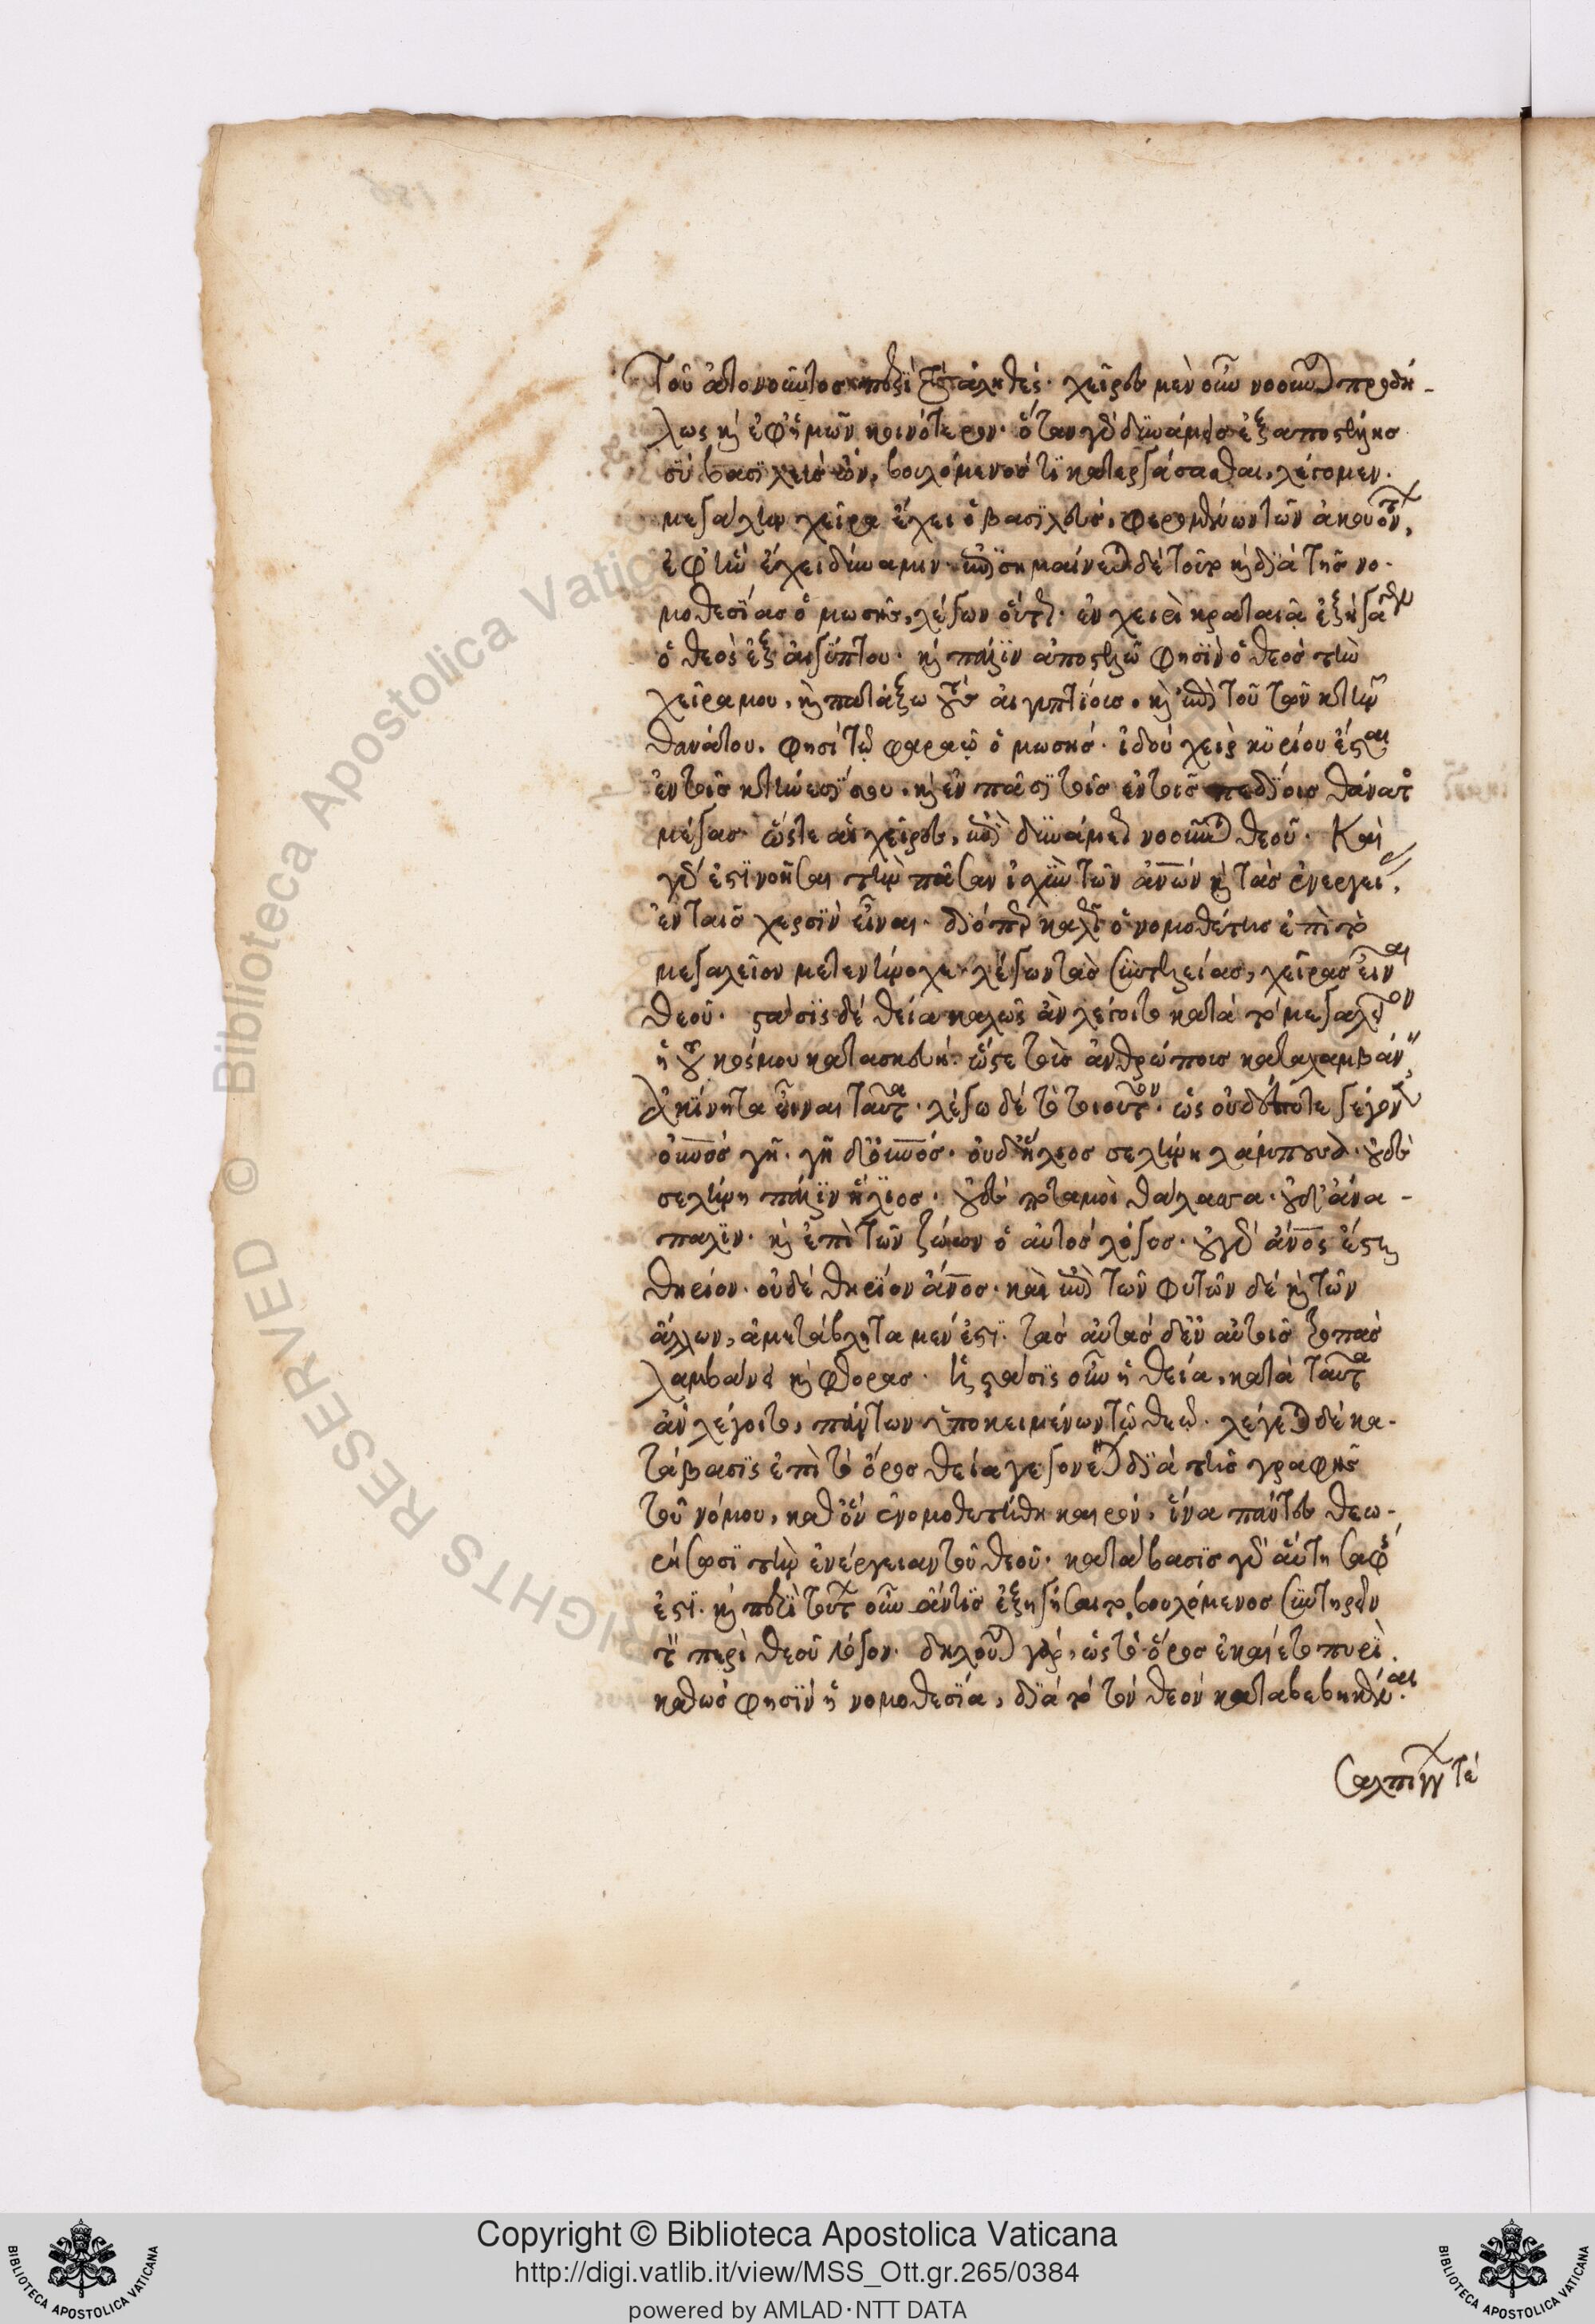 τοῦ ἀπονοοῦντος περὶ τἀληθές. χεῖρες μὲν οὖν νοοῦνται προδή-
λως καὶ ἐφ' ἡμῶν κοινότερον. ὅταν γὰρ δυνάμεις ἐξαποστέλλῃς
σὺ βασιλεὺς ὢν, βουλόμενός τι κατεργάσασθαι, λέγομεν.
μεγάλην χεῖρα ἔχει ὁ βασιλεύς, φερομένων τῶν ἀκουόντων,
ἐφ' ἣν ἔχει δύναμιν. ἐπισημαίνεται δὲ τοῦτο καὶ διὰ τῆς νο-
μοθεσίας ὁ μωσῆς, λέγων οὕτως. ἐν χειρὶ κραταιᾷ ἐξήγαγεν
ὁ θεὸς ἐξ αἰγύπτου. καὶ πάλιν ἀποστελῶ φησὶν ὁ θεὸς τὴν
χεῖρα μου, καὶ πατάξω τοὺς αἰγυπτίους. καὶ ἐπὶ τοῦ τῶν κτηνῶν
θανάτου. φησὶ τῷ φαραῷ ὁ μωσῆς. ἰδοὺ χεὶρ κυρίου ἔσται
ἐν τοῖς κτήνεσί σου. καὶ ἐν πᾶσι τοῖς ἐν τοῖς πεδίοις θάνατος
μέγας. ὥστε αἱ χεῖρες, ἐπὶ δυνάμεως νοοῦνται θεοῦ. Καὶ
γάρ ἐστι νοῆσαι τὴν πᾶσαν ἰσχὺν τῶν ἀνων καὶ τὰς ἐνεργείας,
ἐν ταῖς χερσὶν εἶναι. διόπερ καλῶς ὁ νομοθέτης ἐπὶ τὸ
μεγαλεῖον μετενήνοχε. λέγων τὰς συντελείας, χεῖρας εἶναι
θεοῦ. στάσις δὲ θεία καλῶς ἂν λέγοιτο κατὰ τὸ μεγαλεῖον
ἡ τοῦ κόσμου κατασκευή. ὥστε τοῖς ἀνθρώποις καταλαμβάνειν,
ἀκίνητα εἶναι ταῦτα. λέγω δὲ τὸ τοιοῦτον. ὡς οὐδέποτε γέγονεν
οὐνὸς γῆ. γῆ δ' οὐνός. οὐδ' ἥλιος σελήνη λάμπουσα. οὐδὲ
σελήνη πάλιν ἥλιος. οὐδὲ ποταμοὶ θάλασσα. οὐδ' ἀνά-
παλιν. καὶ ἐπὶ τῶν ζώων ὁ αὐτὸς λόγος. οὐ γὰρ ἄνος ἔσται
θηρίον. οὐδὲ θηρίον ἄνος. καὶ ἐπὶ τῶν φυτῶν δὲ καὶ τῶν
ἄλλων, ἀμετάβλητα μέν ἐστι. τὰς αὐτὰς δ' ἐν αὐτοῖς τροπὰς
λαμβάνει καὶ φθοράς. ἡ στάσις οὖν ἡ θεία, κατὰ ταῦτα
ἂν λέγοιτο, πάντων ὑποκειμένων τῷ θεῷ. λέγεται δὲ κα-
τάβασις ἐπὶ τὸ ὄρος θεία γεγονέναι διὰ τῆς γραφῆς
τοῦ νόμου, καθ' ὃν ἐνομοθετήθη καιρόν, ἵνα πάντες θεω-
ρήσωσι τὴν ἐνέργειαν τοῦ θεοῦ. κατάβασις γὰρ αὕτη σαφής
ἐστι. καὶ περὶ τούτων οὖν ἄν τις ἐξηγήσαιτο, βουλόμενος συντηρεῖν
τὸν περὶ θεοῦ λόγον. δηλοῦται γάρ, ὡς τὸ ὄρος ἐκαίετο πυρί.
καθώς φησιν ἡ νομοθεσία, διὰ τὸ τὸν θεὸν καταβεβηκέναι.
σάλπιγγων τε